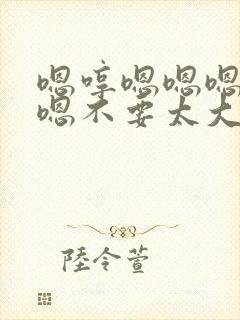 嗯哼嗯嗯嗯
嗯不要太大
陸令萱